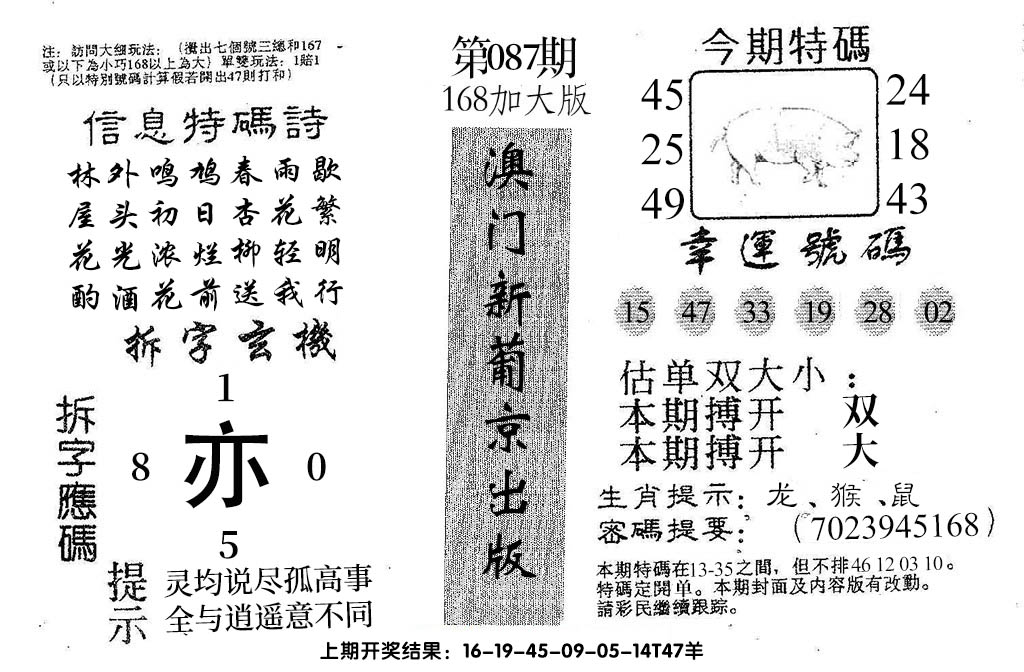 注：訪問大细玩法：（攪出七個號三總和167
或以下為小巧168以上為大）單雙玩法：1賠1
（只以特別號碼計算假若開出47則打和）
信息特碼詩
林外鸣鸠春雨歇
屋头初日杏花繁
花光浓烂柳轻明
酌酒花前送我行
拆字玄機
拆字應碼
1
8
亦
0
5
提示
灵均说尽孤高事
全与逍遥意不同
第087期
168加大版
澳门新葡京出版
今期特碼
45
24
25
18
49
43
幸運號碼
15 47 33 19 28 02
估单双大小：
本期搏开 双
本期搏开 大
生肖提示：龙、猴、鼠
密碼提要：（7023945168）
本期特碼在13-35之間，但不排46 12 03 10。
特碼定開单。本期封面及内容版有改動。
請彩民繼續跟踪。
上期开奖结果：16-19-45-09-05-14T47羊